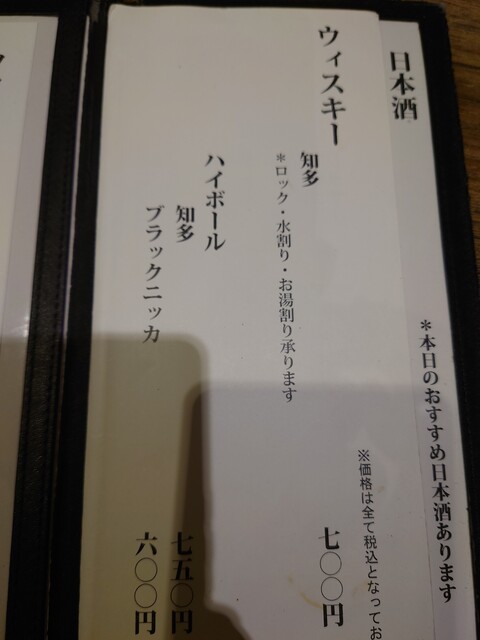 日本酒
*本日のおすすめ日本酒あります
※価格は全て税込となってお
ウィスキー
知多
七〇〇円
*ロック・水割り・お湯割り承ります
ハイボール
知多
七五〇円
ブラックニッカ
六〇〇円